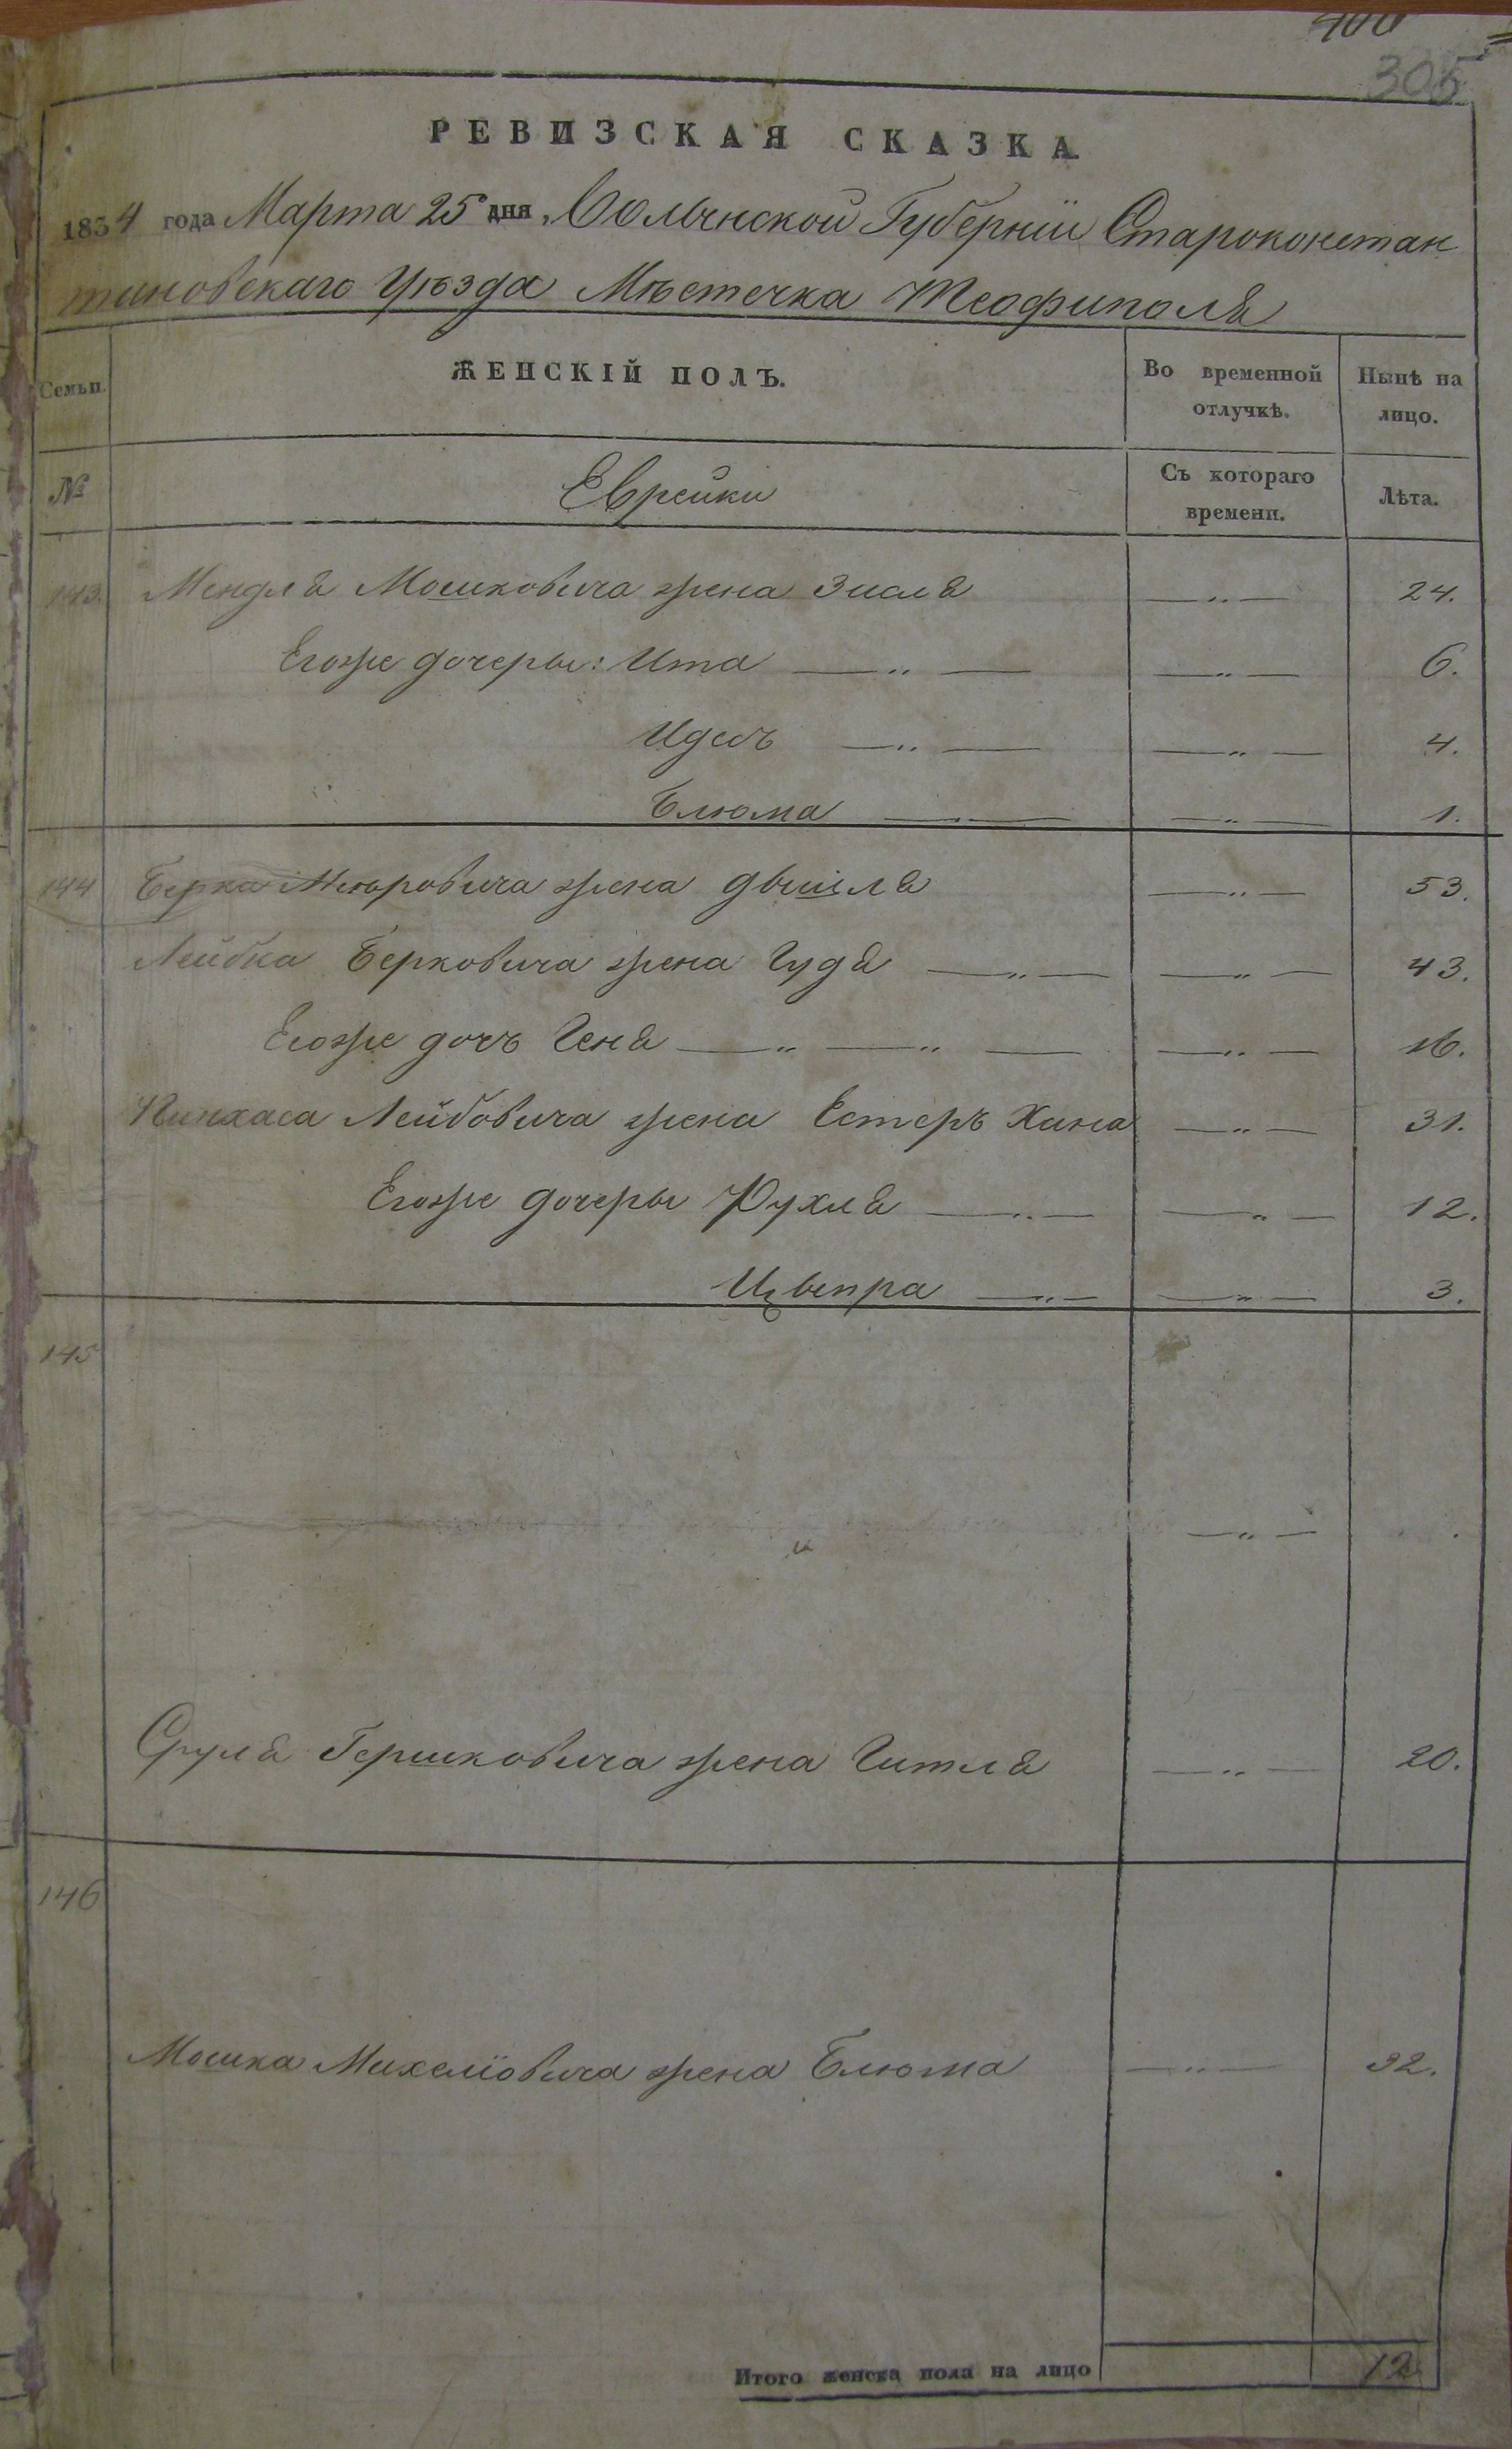 400
305
РЕВИЗСКАЯ СКАЗКА
1834 года Марта 25 дня, Волынской Губернїи Староконстан
тиновскаго Уѣзда Мѣстечка Теофиполя
Семьи.
ЖЕНСКІЙ ПОЛЪ.
Во временной отлучкѣ.
Нынѣ на лицо.
№
Еврейки
Съ котораго времени.
Лѣта.
143. Мендля Мошковича жена Зисля —„— 24.
Егоже дочеры: Ита —„— —„— 6.
Идесъ —„— —„— 4.
Блюма —„— —„— 1.
144 Берка жена двишля —„— 53.
Лейбка Берковича жена Гудя —„— —„— 43.
Егоже дочъ Геня —„—„— —„— 16.
Пинхаса Лейбовича жена Естеръ Хана —„— 31.
Егоже дочеры Рухля —„— —„— 12.
Цыпра —„— —„— 3.
145
—„—
Сруля Гершковича жена Гитля —„— 20.
146
Мошка Михелїовича жена Блюма —„— 32.
Итого женска пола на лицо 12